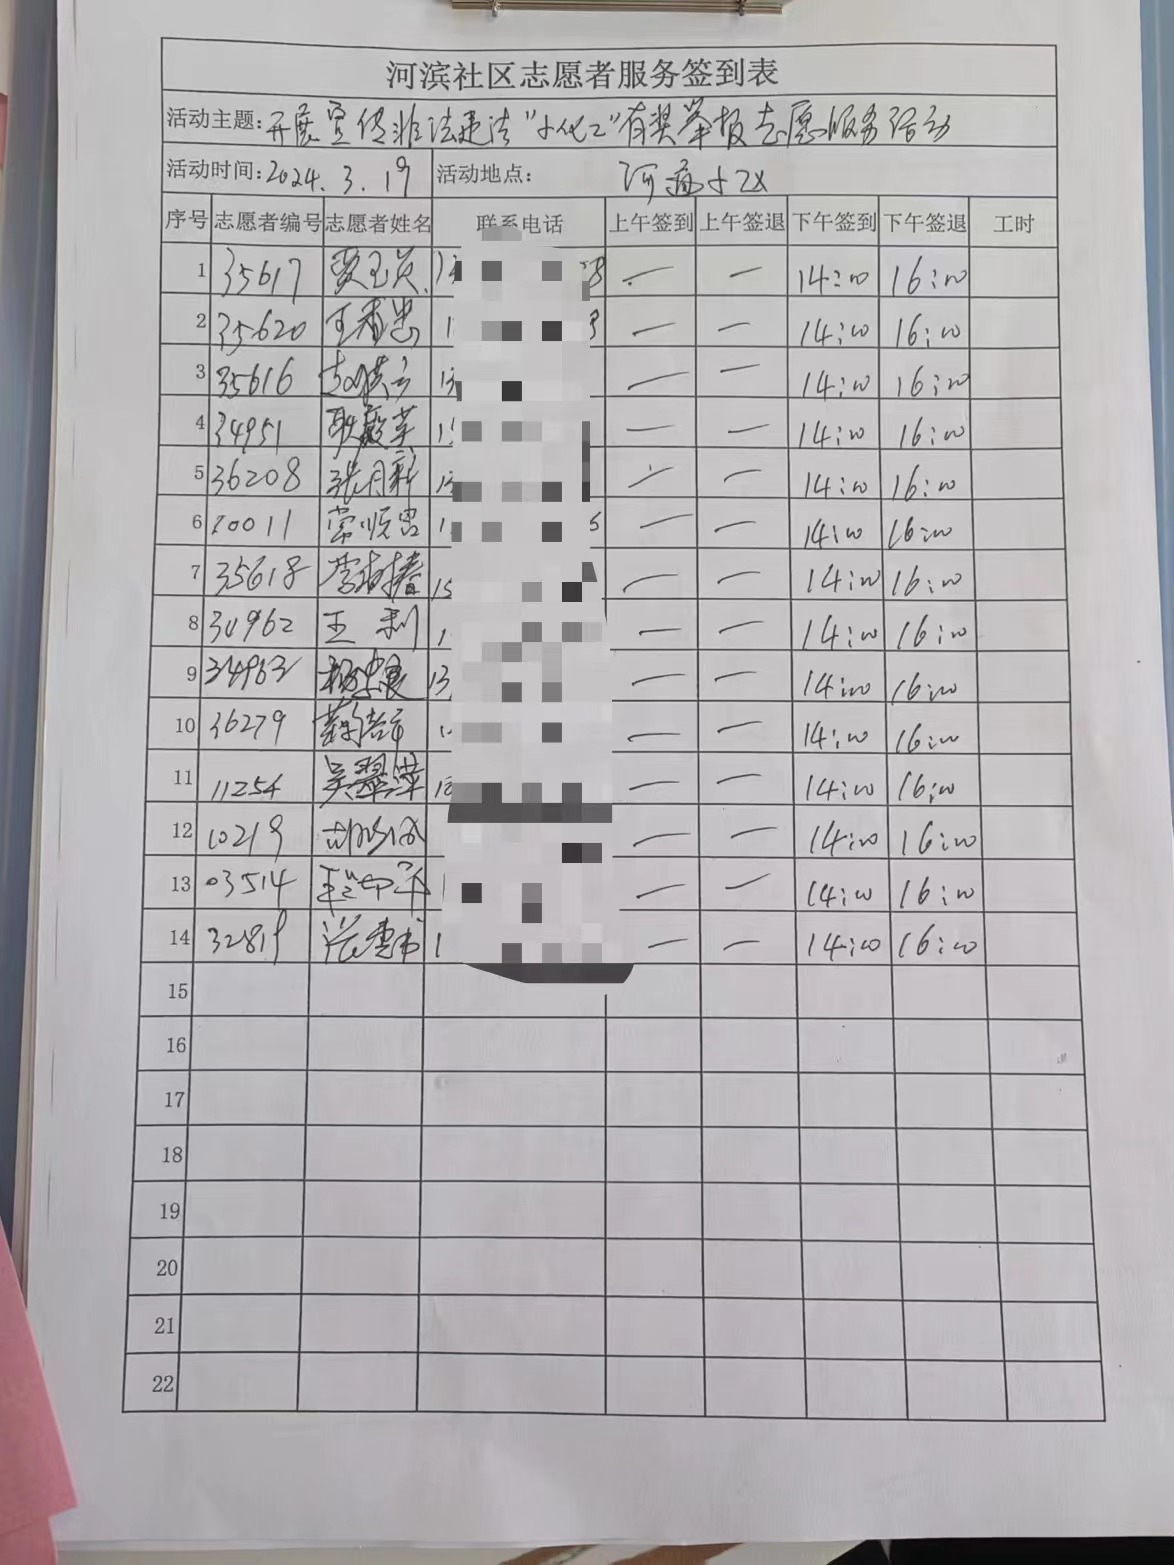 河滨社区志愿者服务签到表
活动主题:开展宣传非法违法"小化工"有奖举报志愿服务活动
活动时间:2024.3.19 活动地点: 河 小区
序号 志愿者编号 志愿者姓名 联系电话 上午签到 上午签退 下午签到 下午签退 工时
1 35617 贾玉英 — — 14:00 16:00
2 35620 王 忠 — — 14:00 16:00
3 35616 — — 14:00 16:00
4 34951 耿 英 — — 14:00 16:00
5 36208 张月新 — — 14:00 16:00
6 20011 常顺 — — 14:00 16:00
7 35618 李 春 — — 14:00 16:00
8 34962 王 利 — — 14:00 16:00
9 34963 杨忠良 — — 14:00 16:00
10 36279 — — 14:00 16:00
11 11254 吴翠萍 — — 14:00 16:00
12 10219 胡 成 — — 14:00 16:00
13 03514 — — 14:00 16:00
14 32819 张 书 — — 14:00 16:00
15
16
17
18
19
20
21
22